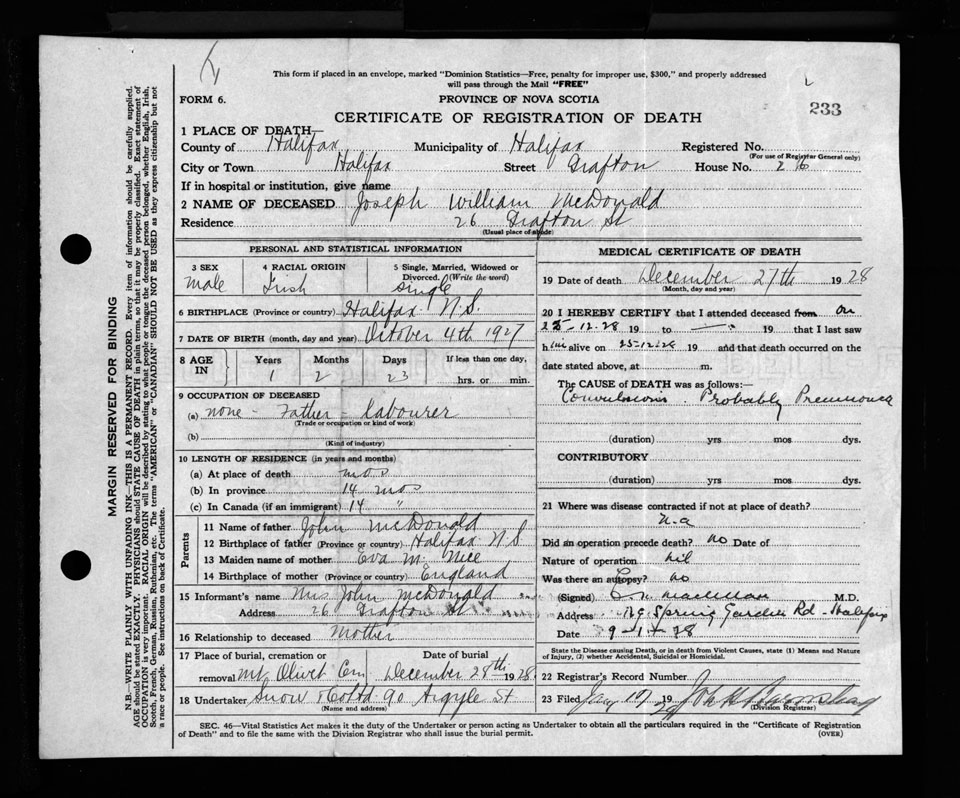 This form if placed in an envelope, marked "Dominion Statistics—Free, penalty for improper use, $300," and properly addressed
will pass through the Mail "FREE"
FORM 6.
PROVINCE OF NOVA SCOTIA
233
CERTIFICATE OF REGISTRATION OF DEATH
1 PLACE OF DEATH—
County of Halifax Municipality of Halifax Registered No.
(For use of Registrar General only)
City or Town Halifax Street Grafton House No. 26
If in hospital or institution, give name
2 NAME OF DECEASED Joseph William McDonald
Residence 26 Grafton St
(Usual place of abode)
PERSONAL AND STATISTICAL INFORMATION
3 SEX
Male
4 RACIAL ORIGIN
Irish
5 Single, Married, Widowed or
Divorced. (Write the word)
single
6 BIRTHPLACE (Province or country) Halifax N.S.
7 DATE OF BIRTH (month, day and year) October 4th 1927
8 AGE IN
Years Months Days If less than one day,
1 2 23 hrs. or min.
9 OCCUPATION OF DECEASED
(a) none - Father = labourer
(Trade or occupation or kind of work)
(b)
(Kind of industry)
10 LENGTH OF RESIDENCE (in years and months)
(a) At place of death mos
(b) In province 14 mos
(c) In Canada (if an immigrant) 14 "
Parents
11 Name of father John McDonald
12 Birthplace of father (Province or country) Halifax N S
13 Maiden name of mother Eva M.
14 Birthplace of mother (Province or country) England
15 Informant's name Mrs John McDonald
Address 26 Grafton St
16 Relationship to deceased Mother
17 Place of burial, cremation or Date of burial
removal Mt Olivet Cem December 28th 1928
18 Undertaker Snow & Co Ltd 90 Argyle St
(Name and address)
MEDICAL CERTIFICATE OF DEATH
19 Date of death December 27th 1928
(Month, day and year)
20 I HEREBY CERTIFY that I attended deceased from on
25-12-28 19 to — 19 that I last saw
him alive on 25-12-28 19 and that death occurred on the
date stated above, at m.
The CAUSE of DEATH was as follows:—
Convulsions. Probably Pneumonia
(duration) yrs mos dys.
CONTRIBUTORY
(duration) yrs mos dys.
21 Where was disease contracted if not at place of death?
n.a
Did an operation precede death? no Date of
Nature of operation nil
Was there an autopsy? no
(Signed) M.D.
Address Spring Garden Rd - Halifax
Date
State the Disease causing Death, or in death from Violent Causes, state (1) Means and
Nature of Injury, (2) whether Accidental, Suicidal or Homicidal.
22 Registrar's Record Number
23 Filed Jany 19 John
(Division Registrar)
SEC. 46—Vital Statistics Act makes it the duty of the Undertaker or person acting as Undertaker to obtain all the particulars required in the "Certificate of Registration
of Death" and to file the same with the Division Registrar who shall issue the burial permit. (OVER)
MARGIN RESERVED FOR BINDING
N.B.—WRITE PLAINLY WITH UNFADING INK—THIS IS A PERMANENT RECORD. Every item of information should be carefully supplied.
AGE should be stated EXACTLY. PHYSICIANS should STATE CAUSE OF DEATH in plain terms, so that it may be properly classified. Exact statement of
OCCUPATION is very important. RACIAL ORIGIN will be described by stating to what people or tongue the deceased person belonged, whether English, Irish,
Scotch, French, German, Russian, Ruthenian, etc. The terms "AMERICAN" or "CANADIAN" SHOULD NOT BE USED as they express citizenship but not
a race or people. See instructions on back of Certificate.